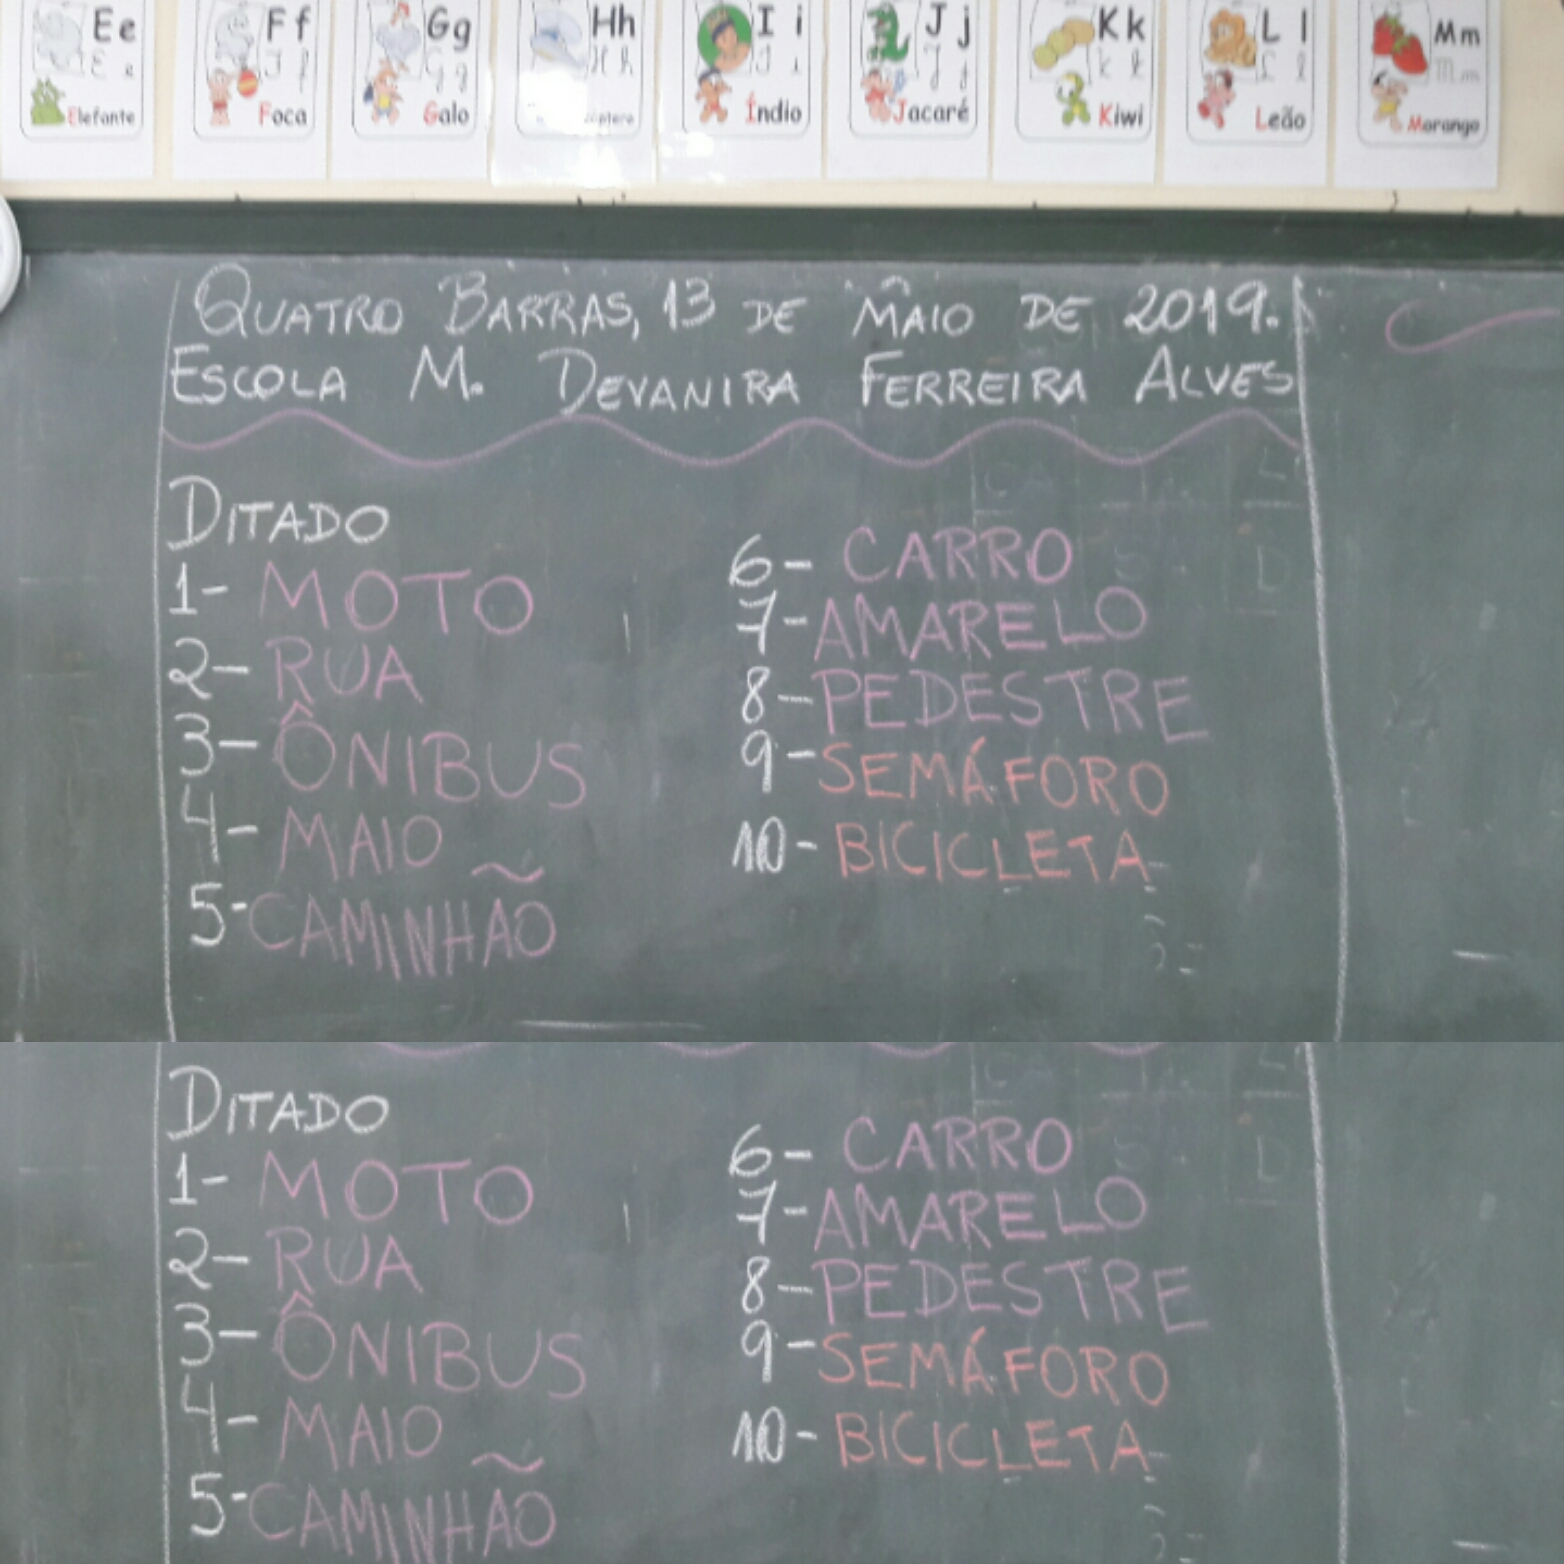 Ee Ff Gg Hh I i J j K k L l Mm
Elefante Foca Galo Índio Jacaré Kiwi Leão Morango
QUATRO BARRAS, 13 DE MAIO DE 2019.
ESCOLA M. DEVANIRA FERREIRA ALVES
DITADO
1- MOTO
2- RUA
3- ÔNIBUS
4- MAIO
5- CAMINHÃO
6- CARRO
7- AMARELO
8- PEDESTRE
9- SEMÁFORO
10- BICICLETA
DITADO
1- MOTO
2- RUA
3- ÔNIBUS
4- MAIO
5- CAMINHÃO
6- CARRO
7- AMARELO
8- PEDESTRE
9- SEMÁFORO
10- BICICLETA